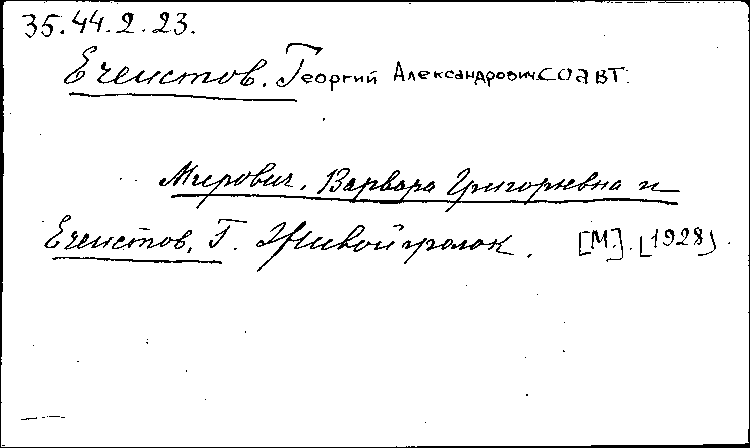 35.44.2.23.
Ечеистов. Георгий Александрович соавт.
Мирович. Варвара Григорьевна и
Ечеистов. Г. Живой уголок. [М]. [1928].